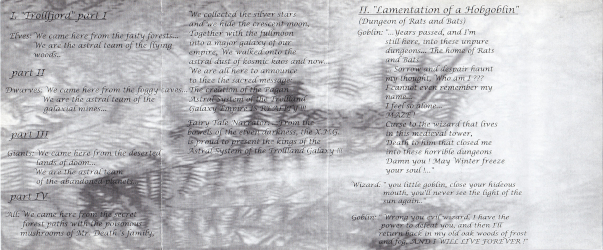 I. "Trollfjord" part I
Elves: We came here from the fairy forests...
We are the astral team of the living
woods..
part II
Dwarves: We came here from the foggy caves...
We are the astral team of the
galaxial mines...
part III
Giants: We came here from the deserted
lands of doom...
We are the astral team
of the abandoned planets
part IV
All: We came here from the secret
forest paths with the poisonous
mushrooms of Mr. Death's family,
We collected the silver stars
and we hide the crescent moon,
Together with the fullmoon
into a major galaxy of our
empire, We walked onto the
astral dust of kosmic kaos and now...
We are all here to announce
to thee the sacred message
The creation of the Pagan
Astral System of the Trolland
Galaxy Empire
Fairy Tale Narrator: From the
bowels of the elvish darkness, the
is proud to present the kings of the
Astral System of the Trolland Galaxy !!!
II. "Lamentation of a Hobgoblin"
(Dungeon of Rats and Bats)
Goblin: "... Years passed, and I'm
still here, into these unpure
dungeons... The home of Rats
and Bats.
Sorrow and despair haunt
my thought, Who am I ???
I cannot even remember my
name...
I feel so alone...
Curse to the wizard that lives
in this medieval tower,
Death to him that closed me
into these horrible dungeons
Damn you ! May Winter freeze
your soul !..."
Wizard: " you little goblin, close your hideous
mouth, you'll never see the light of the
sun again.."
Goblin: " Wrong you evil wizard, I have the
power to defeat you, and then I'll
return back in my old oak woods of frost
and fog, AND I WILL LIVE FOREVER !"